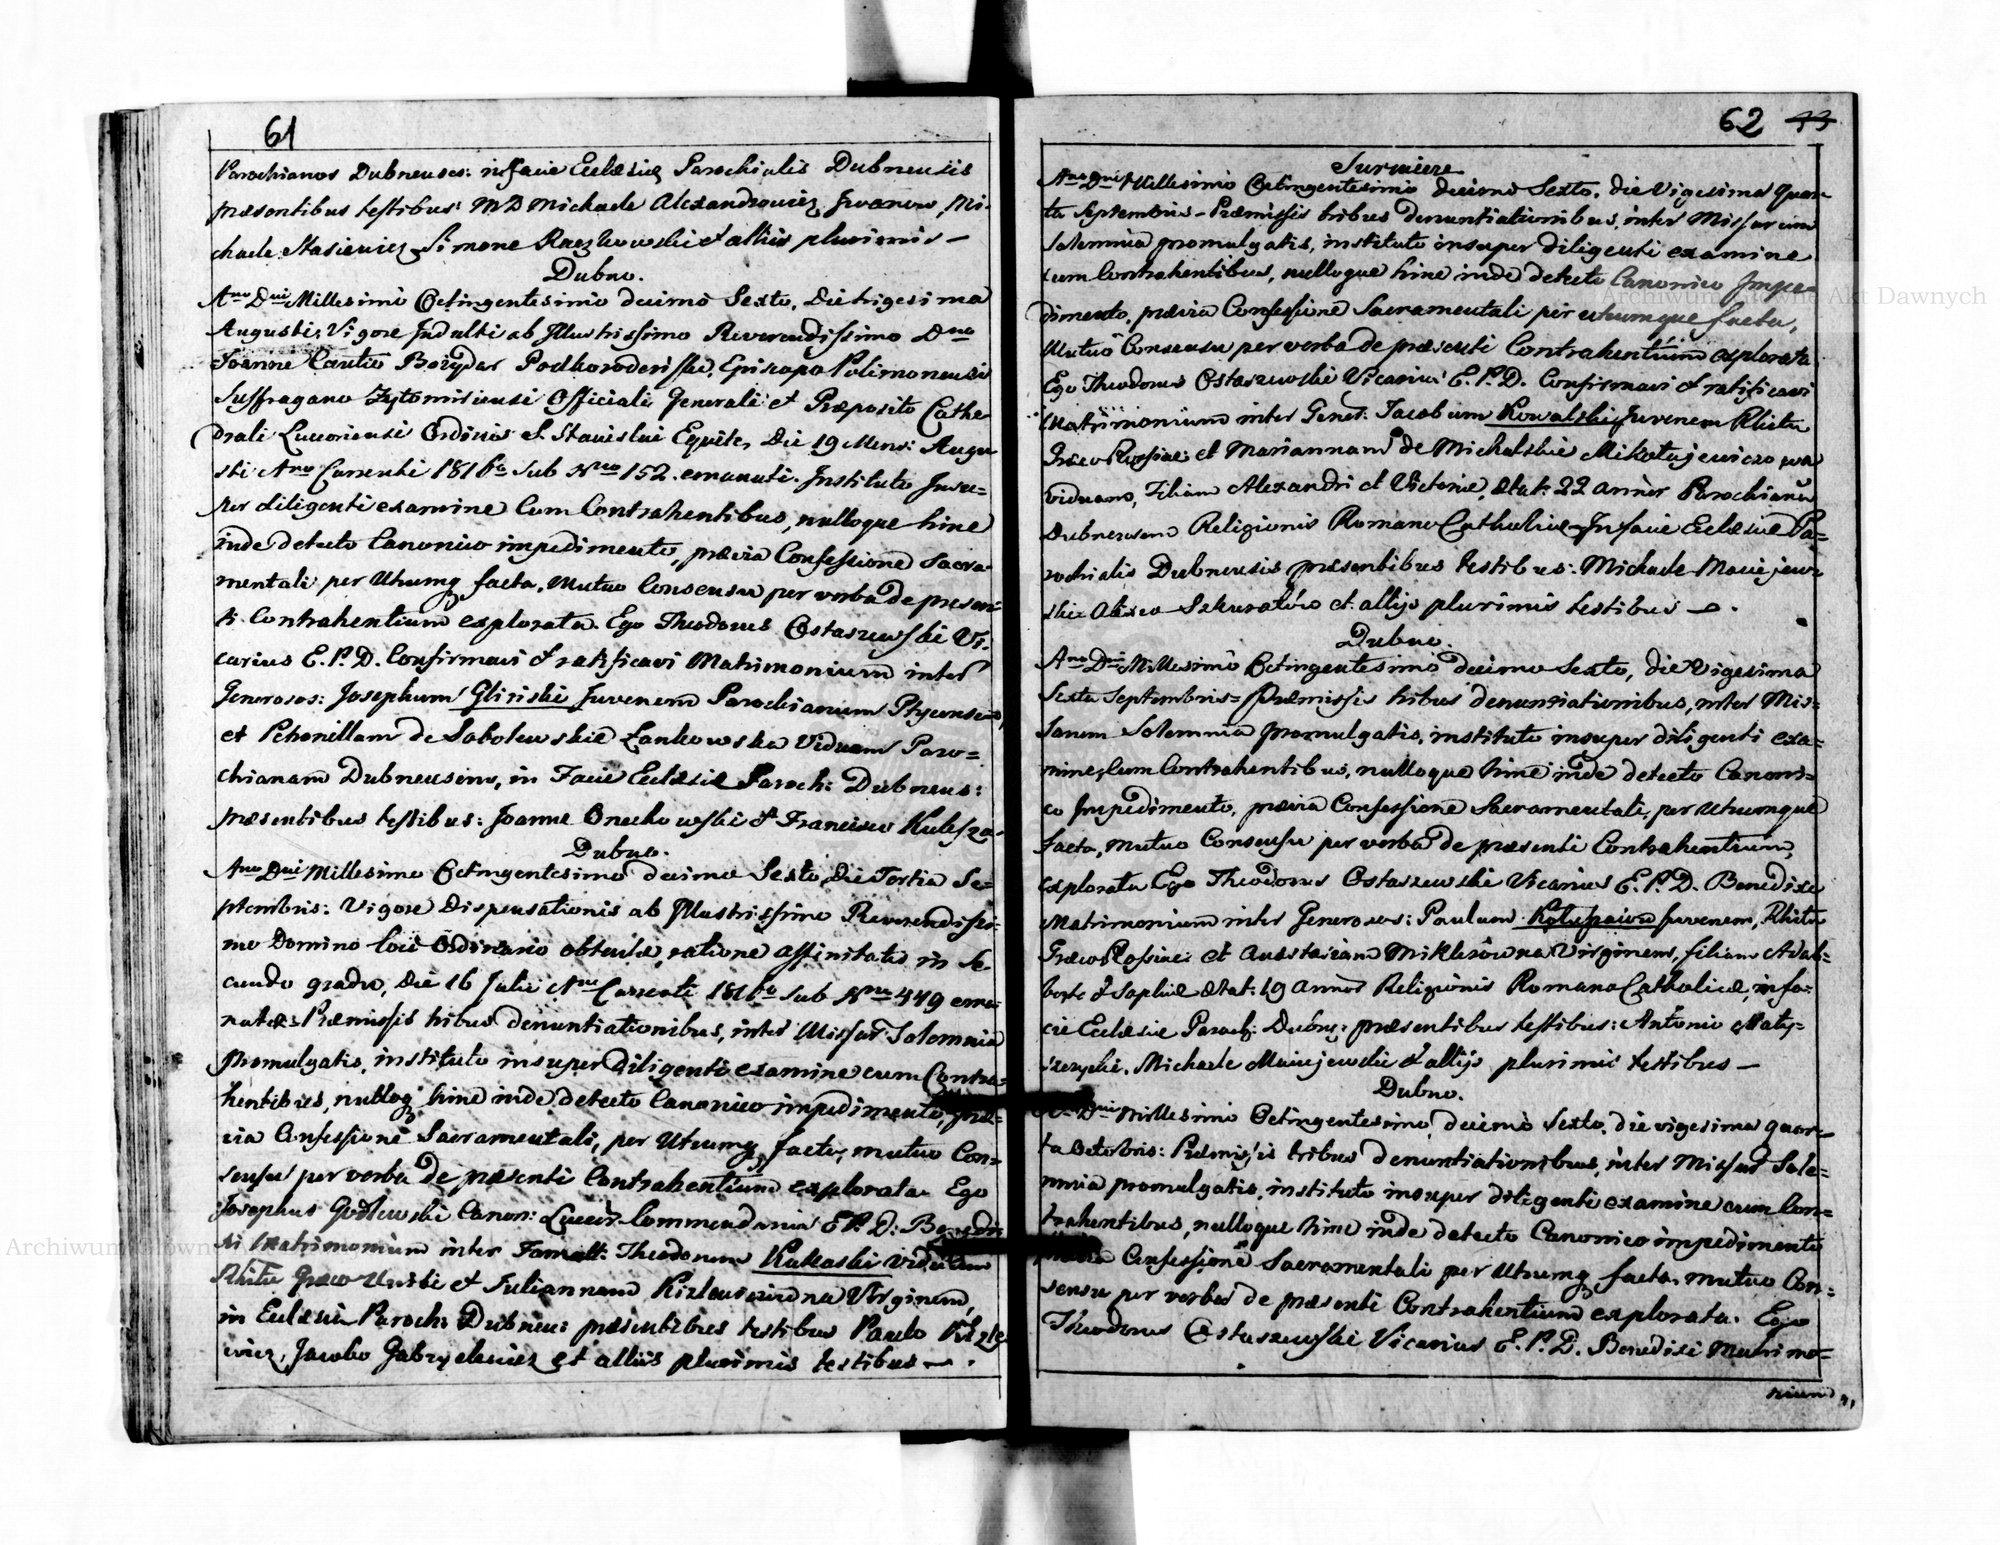 61
Parochianos Dubnenses: in facie Ecclesiæ Parochialis Dubnensis
præsentibus testibus MD Michaele Alexandrowicz, Iwanow, Mi-
chaele Stasiewicz, Simone Raczkowski et alliis plurimis —
Dubno.
Ano Dni Millesimo Octingentesimo decimo Sexto, Die trigesima
Augusti, Vigore Indulti ab Illustrissimo Reverendissimo Dno
Joanne Cantio Bożydar Podhorodeński, Episcopo
Suffragano Zytomiriensi Officiali Generali et Præposito Cathe-
drali Luceoriensi Ordinis S. Stanislai Equite, Die 19 Mens: Augu-
sti Ano Currenti 1816to Sub Nro 152. emanati. Instituto Insu-
per diligenti examine Cum Contrahentibus, nulloque hinc
inde detecto Canonico impedimento, prævia Confessione Sacra-
mentali per Utrumq facta, Mutuo Consensu per verba de præsen-
ti Contrahentium explorato. Ego Theodorus Ostaszewski Vi-
carius E. P. D. Confirmavi et ratificavi Matrimonium inter
Generosos: Josephum Gliński Juvenem Parochianum
et Petronillam de Sobolewskie Lankowska Viduam Paro-
chianam Dubnensem, in Facie Ecclesiæ Paroch: Dubnens:
præsentibus testibus: Joanne Onechowski et Francisco Kulesza.
Dubno.
Ano Dni Millesimo Octingentesimo decimo Sexto, Die Tertia Se-
ptembris: Vigore Dispensationis ab Illustrissimo Reverendissi-
mo Domino Loci Ordinario obtentæ, ratione affinitatis in Se-
cundo gradu, Die 16 Julii Ano Currenti 1816to Sub Nro 449 ema-
natæ: Præmissis tribus denuntiationibus, inter Missar: Solemnia
promulgatis, instituto insuper Diligenti examine cum Contra-
hentibus, nulloq hinc inde detecto Canonico impedimento, præ-
via Confessione Sacramentali, per Utrumq facta, mutuo Con-
sensu per verba de præsenti Contrahentium explorato. Ego
Josephus Godlewski Canon: Luceor: Commendarius E P. D: Benedi-
xi Matrimonium inter Famatt: Theodorum Kulkaski Viduum
Ritu Græco Uniti et Juliannam Virginem,
in Ecclesia Paroch: Dubnen: præsentibus testibus Paulo
Jacobo Gabryelewicz et alliis plurimis testibus —.
62 43
Surmicze
Ano Dni Millesimo Octingentesimo decimo Sexto, die Vigesima Quar-
ta Septembris - Præmissis tribus denuntiationibus, inter Missarum
Solemnia promulgatis, instituto insuper diligenti examine
cum Contrahentibus, nulloque hinc inde detecto Canonico Impe-
dimento, prævia Confessione Sacramentali per utrumque facta,
Mutuo Consensu per verba de præsenti Contrahentium explorato
Ego Theodorus Ostaszewski Vicarius E. P. D. Confirmavi et ratificavi
Matrimonium inter Gener: Jacobum Kowalski Juvenem Ritu
Græco Rossiac: et Mariannam de Michalskie Mikołajewiczowa
viduam, Filiam Alexandri et Victoriæ, ætat: 22 annor Parochiana
Dubnensem Religionis Romano Catholicæ In facie Ecclesiæ Pa-
rochialis Dubnensis præsentibus testibus: Michaele Maciejew-
ski et allijs plurimis testibus —.
Dubno.
Ano Dni Millesimo Octingentesimo decimo Sexto, die Vigesima
Sexta Septembris = Præmissis tribus denuntiationibus, inter Mis-
sarum Solemnia promulgatis, instituto insuper diligenti exa-
mine, Cum Contrahentibus, nulloque hinc inde detecto Canoni-
co Impedimento, prævia Confessione Sacramentali, per Utrumque
facta, mutuo Consensu per verba de præsenti Contrahentium,
explorato Ego Theodorus Ostaszewski Vicarius E. P. D. Benedixi
Matrimonium inter Generosos: Paulum Juvenem, Ritu
Græco Rossiac: et Anastasiam Miklszowna Virginem, filiam Adal-
berti et Sophiæ ætat: 19 annor Religionis Romano Catholicæ, in fa-
cie Ecclesiæ Paroch: Dubn: præsentibus testibus: Antonio Maty-
Michaele Maciejewski et allijs plurimis testibus —
Dubno.
Ano Dni Millesimo Octingentesimo, decimo Sexto, die vigesima quar-
ta Octobris: Præmissis tribus denuntiationibus, inter Missar Sole-
mnia promulgatis, instituto insuper diligenti examine cum Con-
trahentibus, nulloque hinc inde detecto Canonico impedimento
prævia Confessione Sacramentali per Utrumq facta, mutuo Con-
sensu per verba de præsenti Contrahentium explorato. Ego
Theodorus Ostaszewski Vicarius E. P. D. Benedixi Matrimo-
nium
Archiwum Główne Akt Dawnych